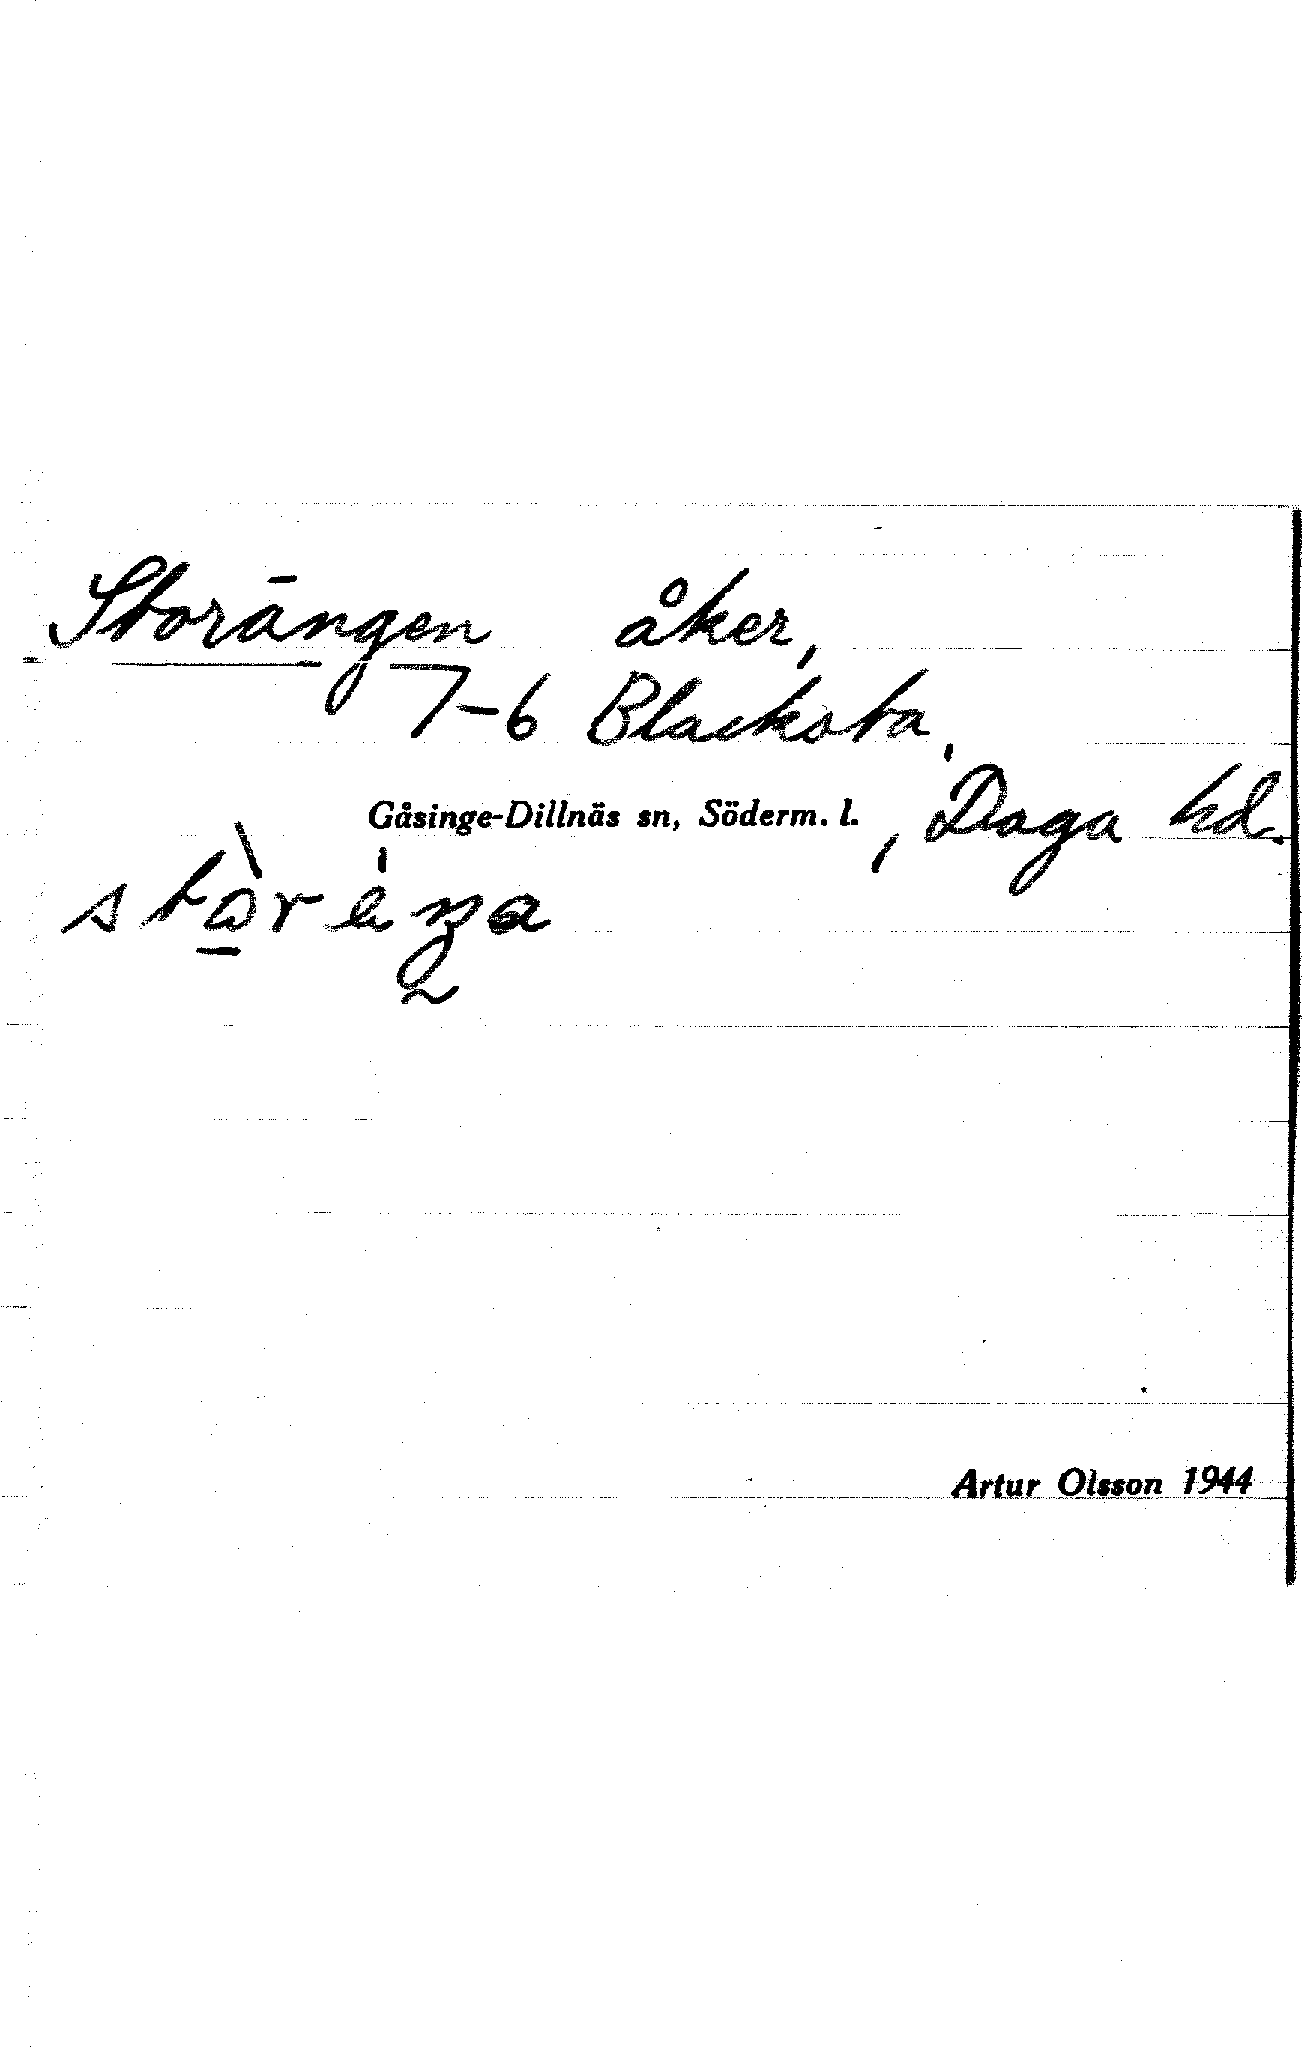 Storängen åker,
7-6 Blacksta,
Gåsinge-Dillnäs sn, Söderm. l., Daga hd.
Artur Olsson 1944